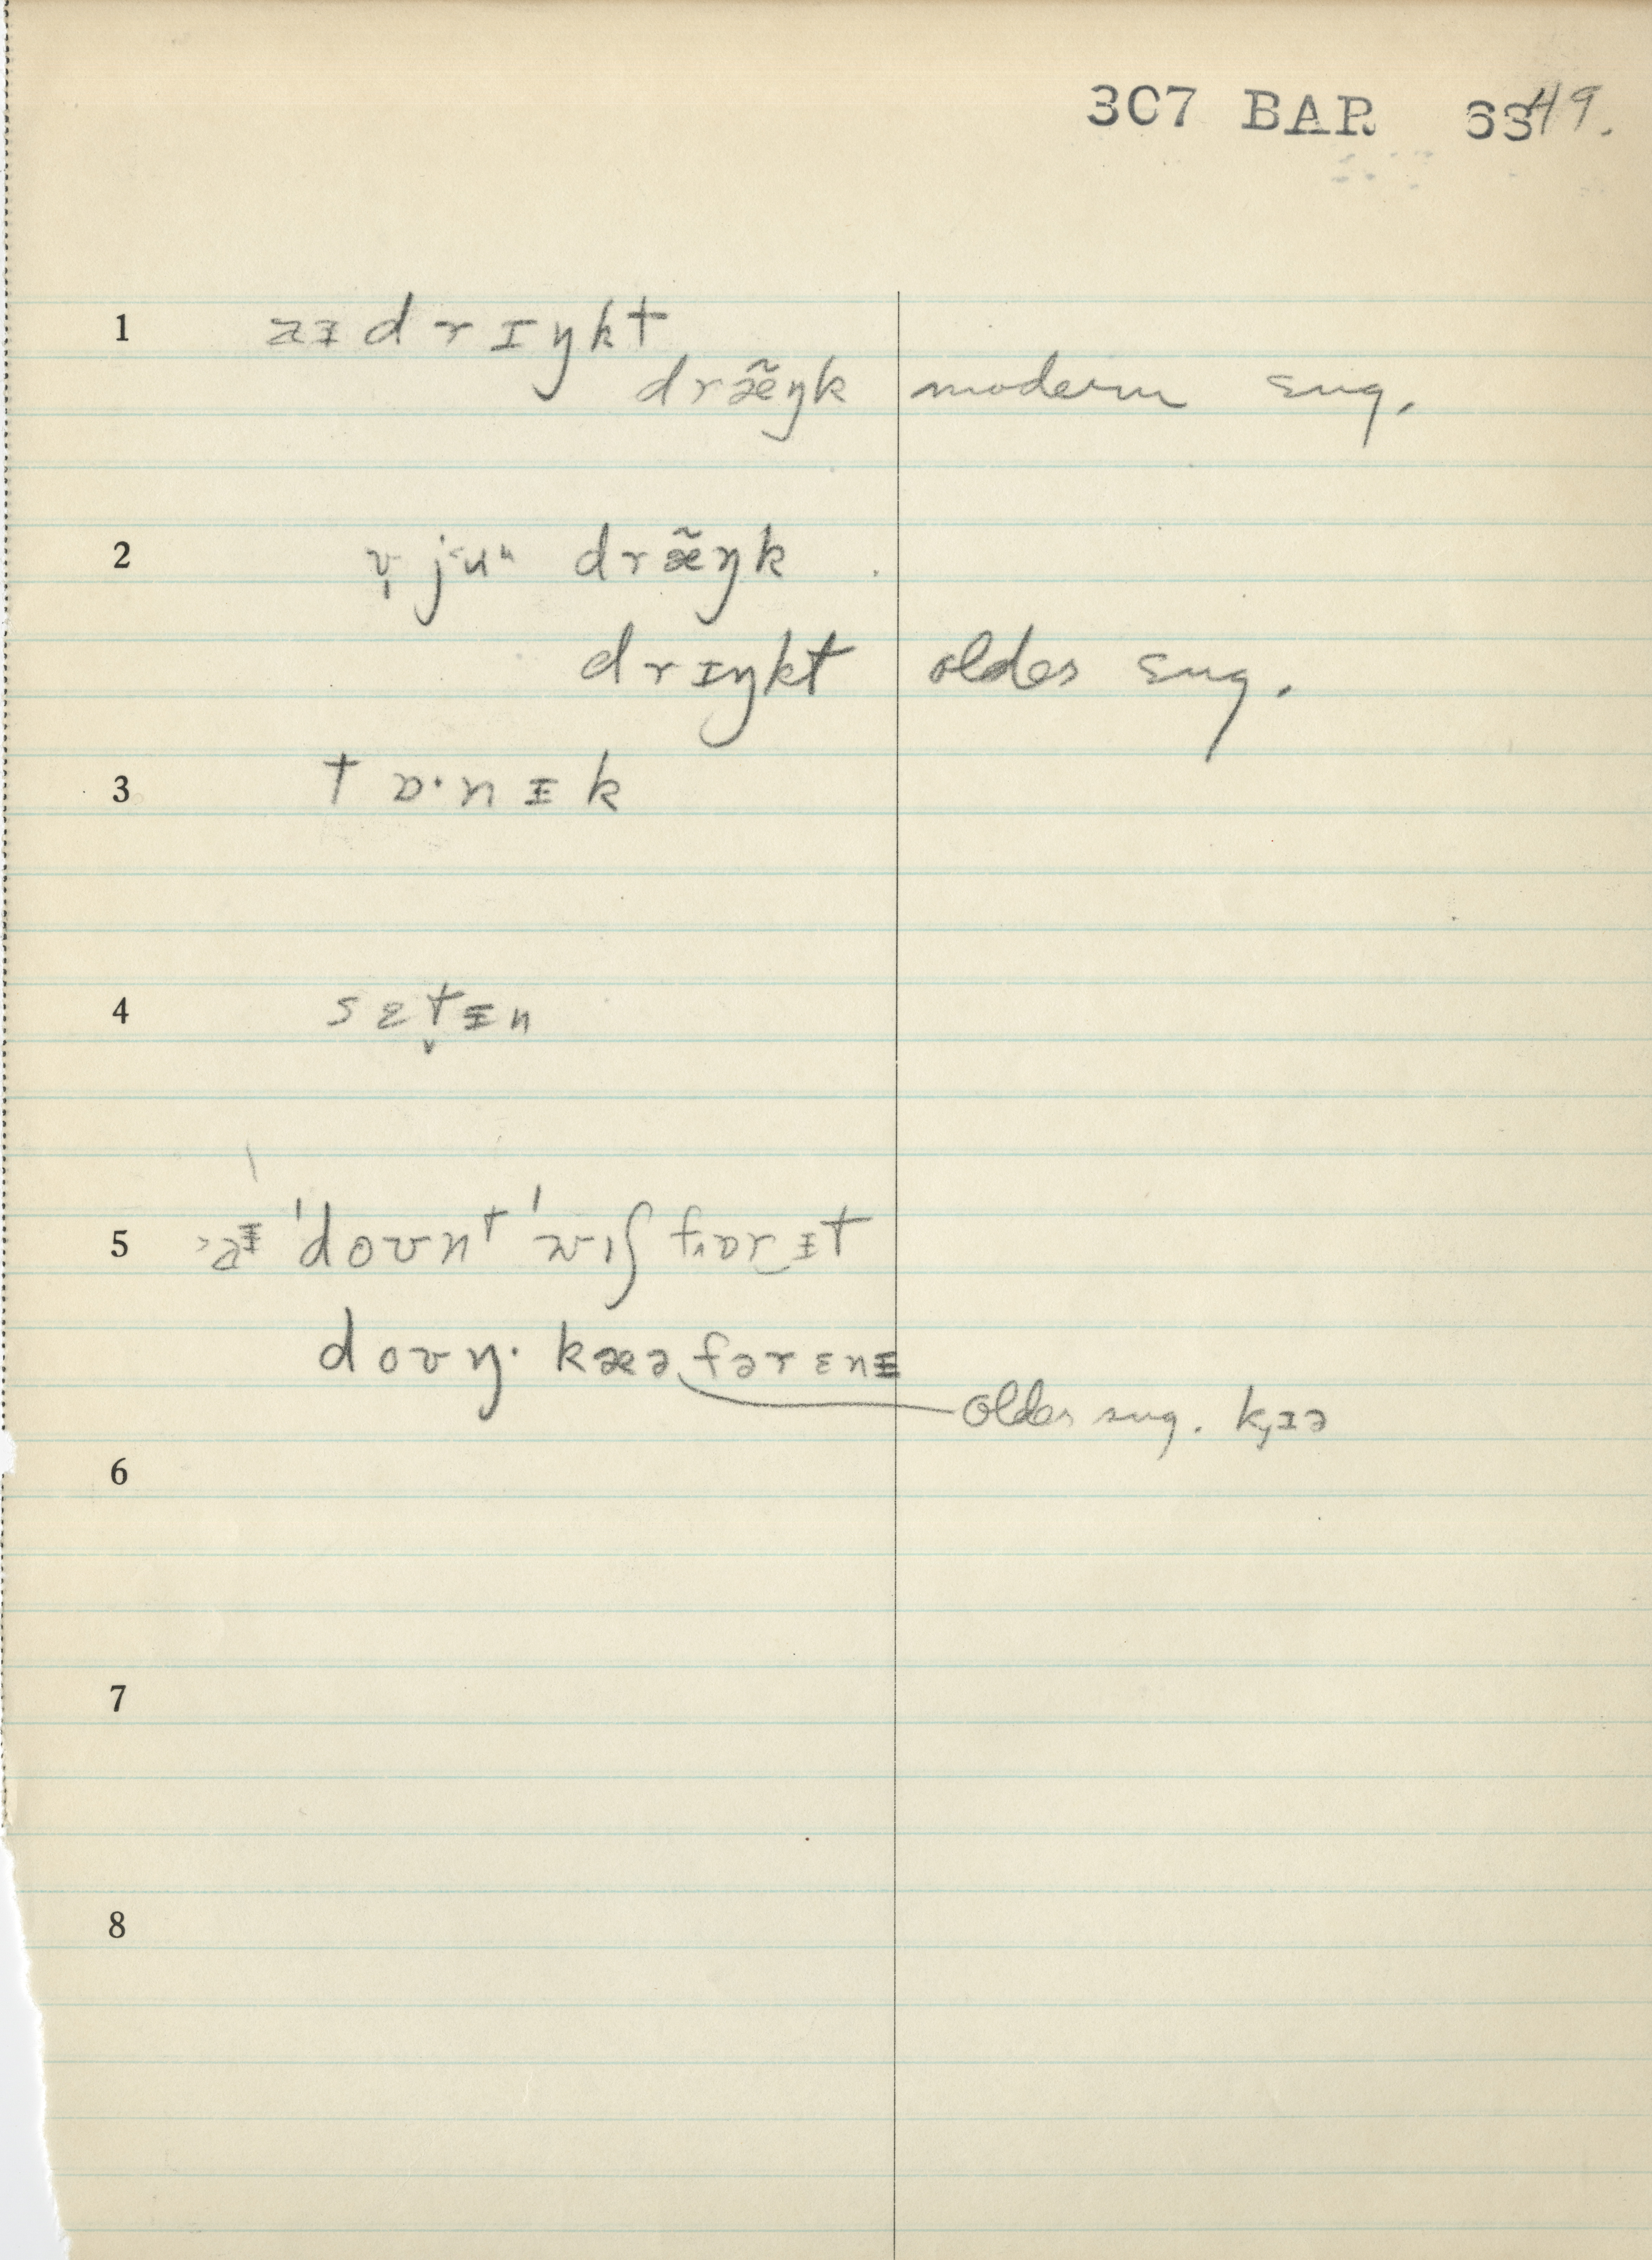 3C7 BAR 6349.
1 aᵻ d r ɪ ŋ k t
dræ̃ŋk modern sug.
2 jᵘuᵘ dræ̃ŋk
drɪŋkt older sug.
3 t ɒ· n ᵻ k
4 s ɛ t̬ ᵻ n
5 aᵻ 'dount 'wɪʃ fɒr‿ᵻt
douŋ· kæə fər ɛnᵻ
older sug. kɪə
6
7
8